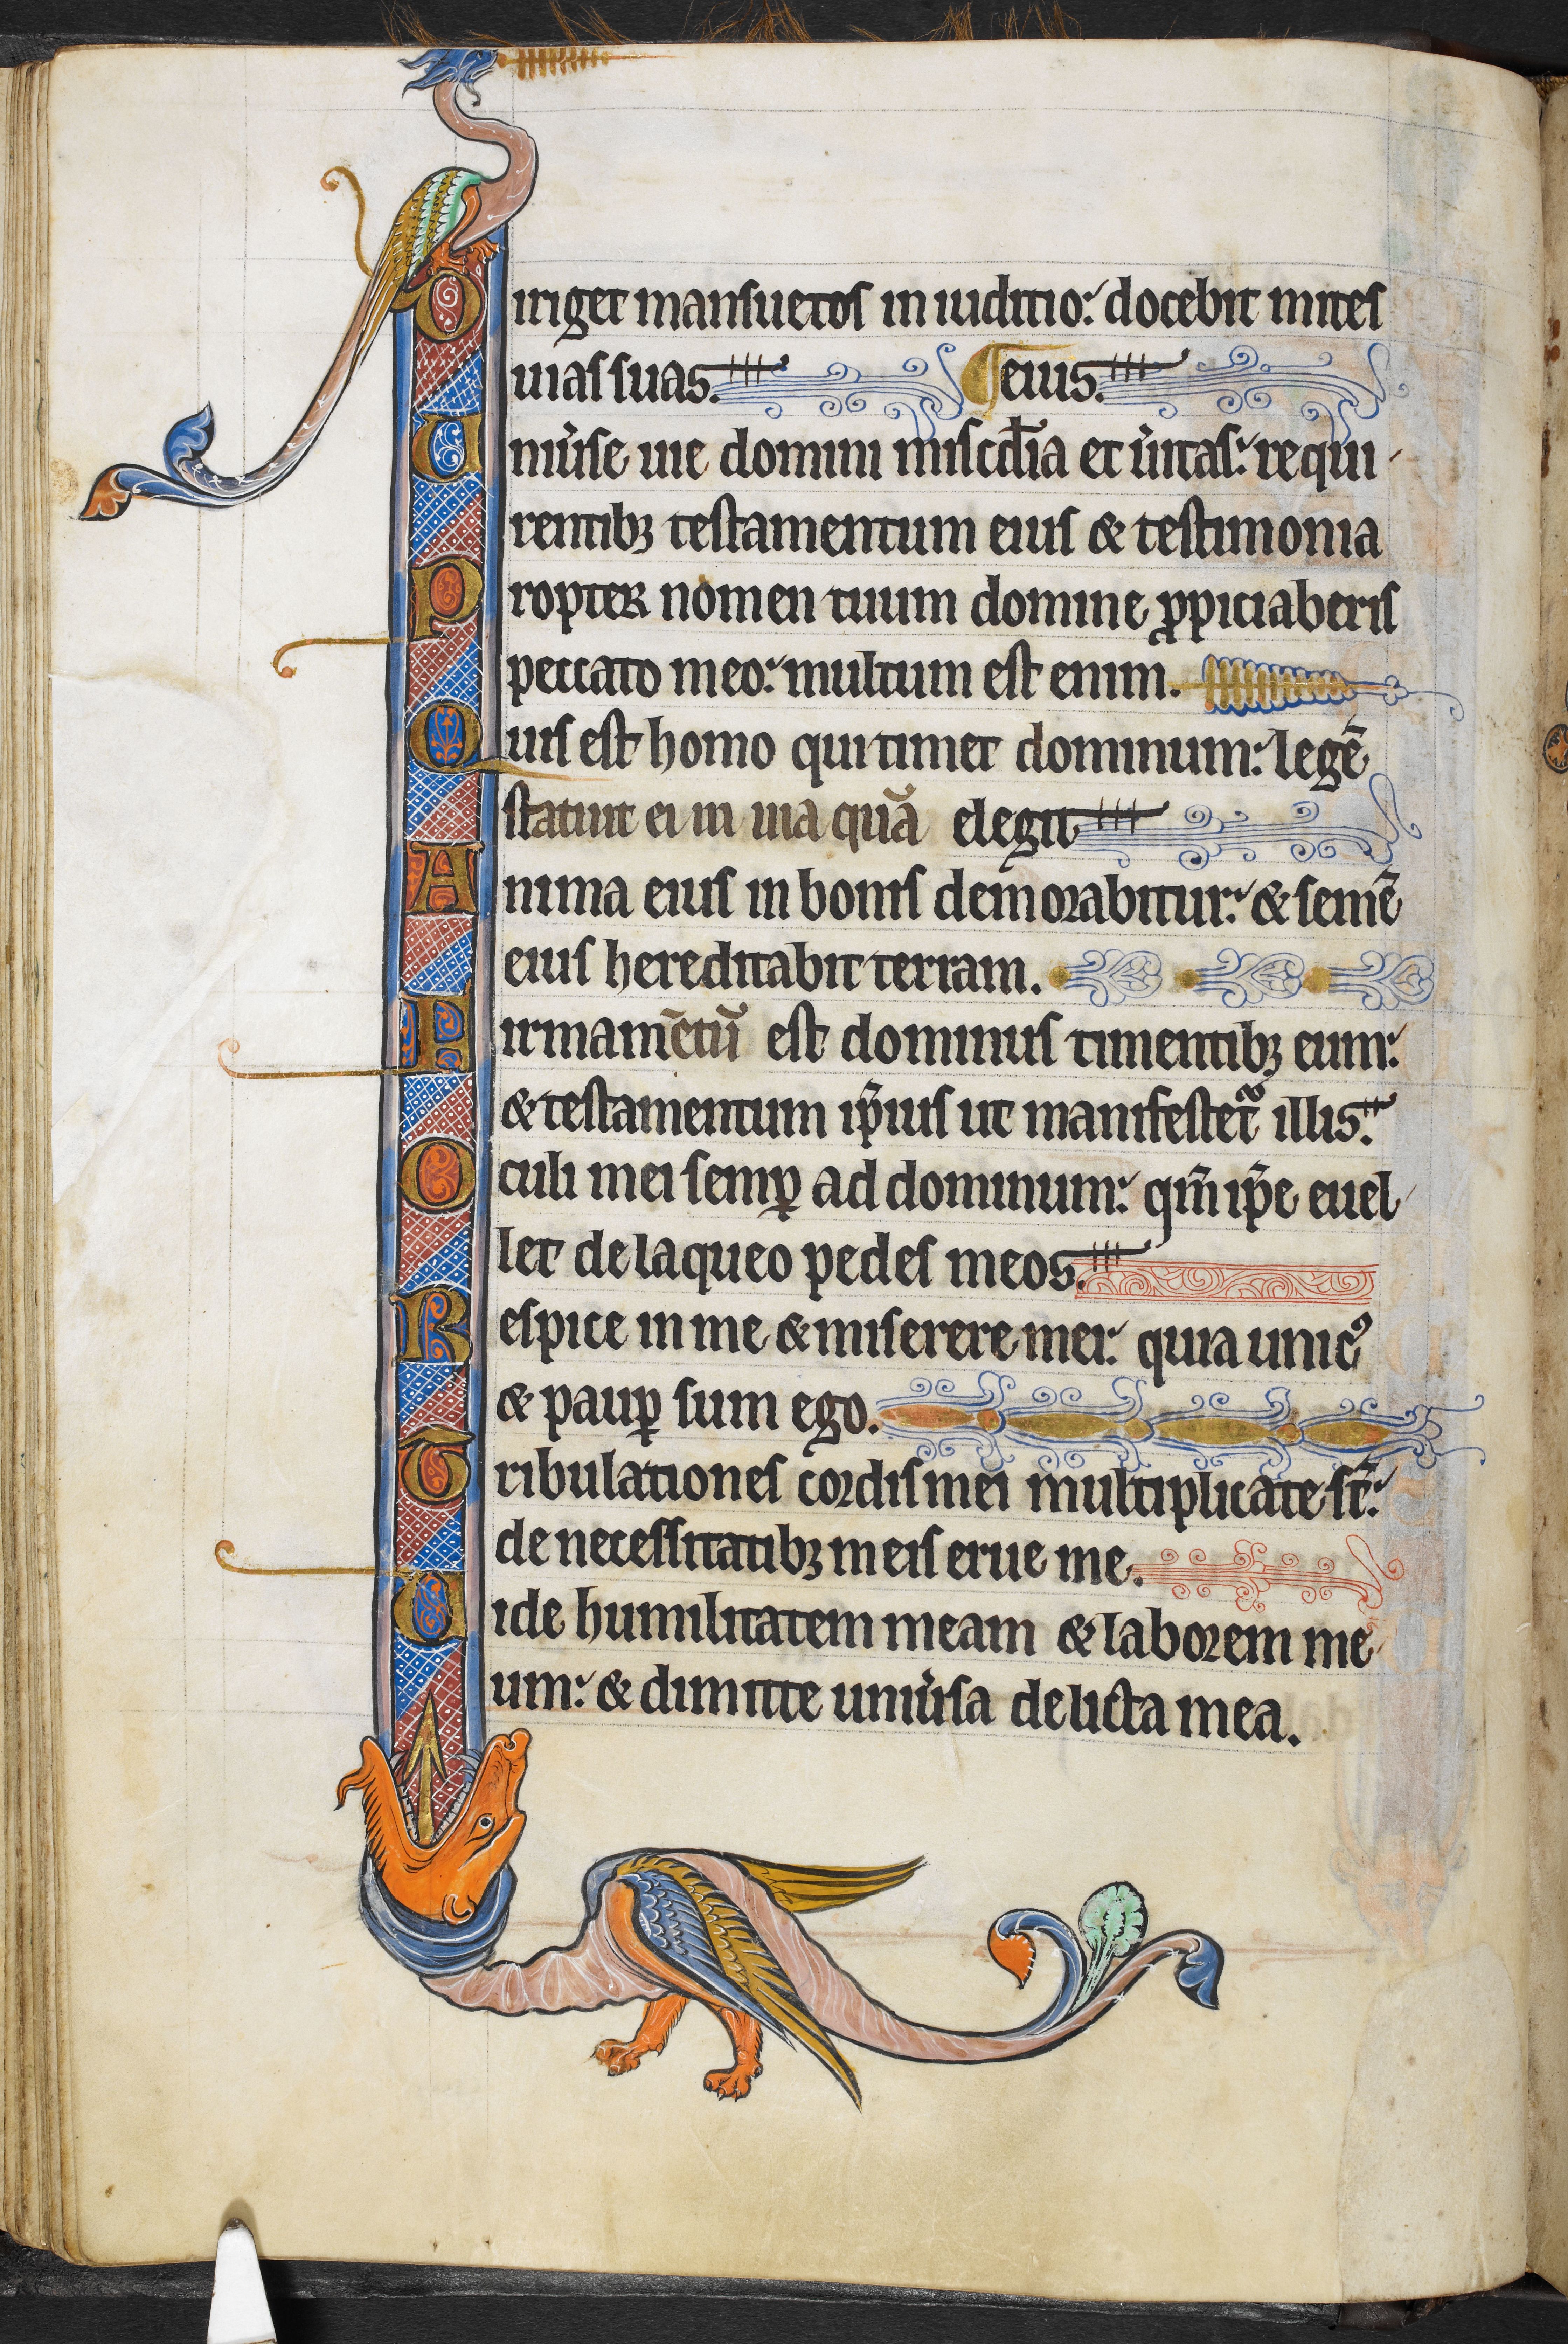 Diriget mansuetos in iuditio: docebit mites
uias suas. ¶ eius.
Uniu͛se uie domini misc͛dia et u͛itas: requi
rentib; testamentum eius & testimonia
Propter nomen tuum domine ꝓpiciaberis
peccato meo: multum est enim.
Quis est homo qui timet dominum: legē
statuit ei in uia quā elegit
Anima eius in bonis demorabitur: & semē
eius hereditabit terram.
Firmamētū est dominus timentib; eum:
& testamentum ip̄ius ut manifestet᷑ illis.
Oculi mei semꝑ ad dominum: qm̄ ip̄e euel
let de laqueo pedes meos.
Respice in me & miserere mei: quia unicꝰ
& pauꝑ sum ego.
Tribulationes cordis mei multiplicate st̄:
de necessitatib; meis erue me.
Uide humilitatem meam & laborem me
um: & dimitte uniu͛sa delicta mea.